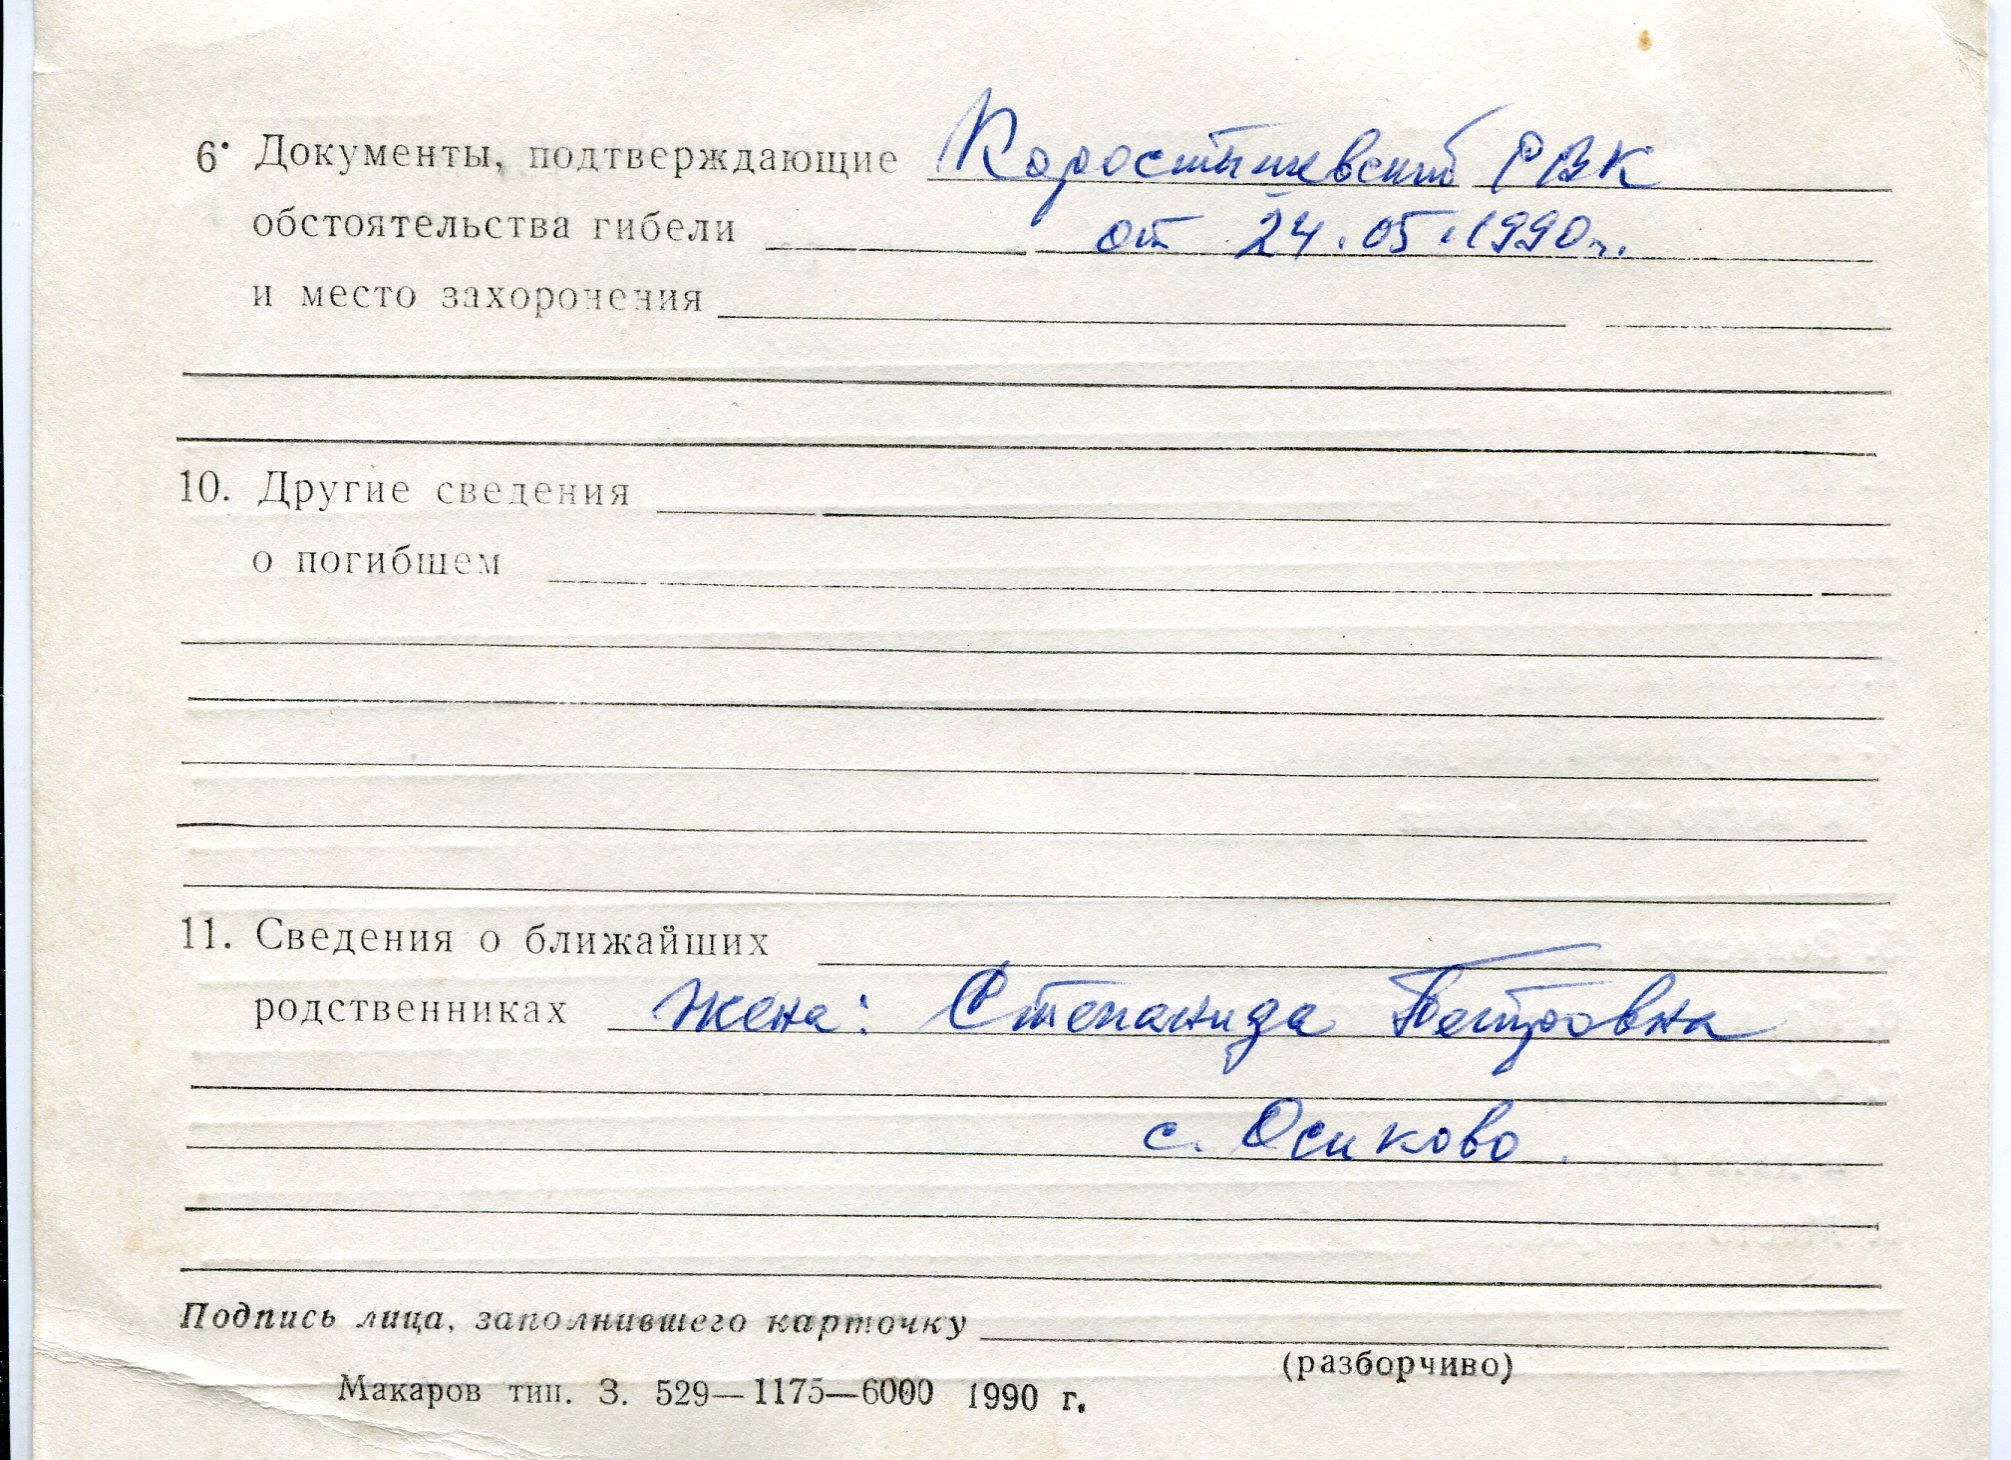 6. Документы, подтверждающие Коростышевский РВК
обстоятельства гибели от 24.05.1990г.
и место захоронения
10. Другие сведения
о погибшем
11. Сведения о ближайших
родственниках жена: Степанида Петровна
с. Осиково
Подпись лица, заполнившего карточку
(разборчиво)
Макаров тип. З. 529—1175—6000 1990 г.